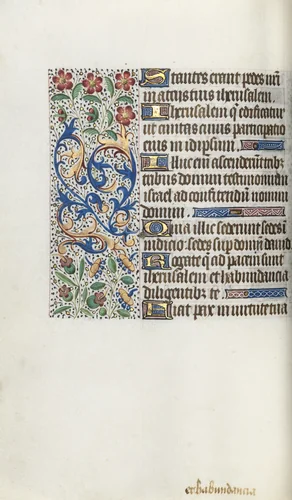 Stantes erant pedes nr̄i
in atriis tuis iherusalem.
Iherusalem q̄ edificatur
ut civitas cuius participatio
eius in idipsum.
Illuc eni ascenderūt trib9
tribus domini testimonium
israel ad confitendū nomini
domini.
Quia illic sederunt sedes i
iudicio: sedes sup domū david
Rogate q̄ ad pacem sunt
iherusalem et habundancia
diligentib9 te.
Fiat pax in virtute tua
et habundancia